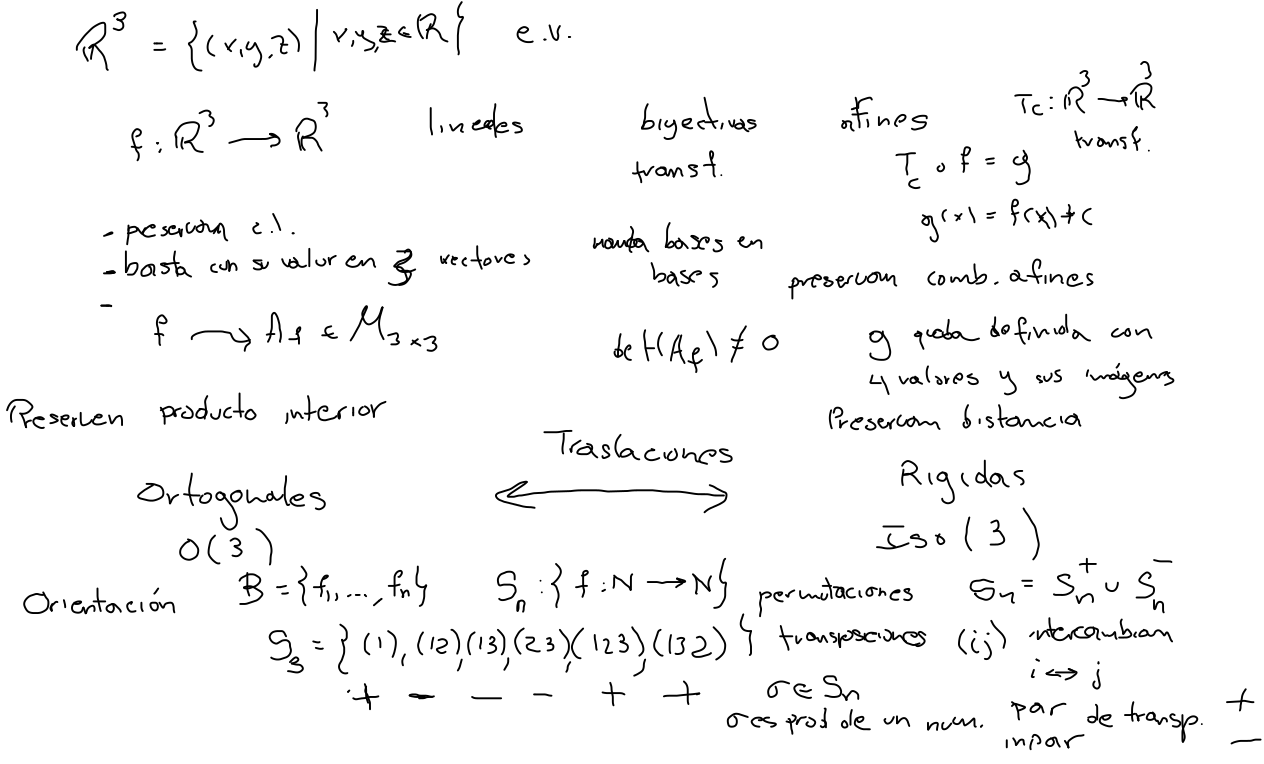 ℝ³ = {(x,y,z) | x,y,z ∈ ℝ} e.v.
f: ℝ³ → ℝ³ lineales biyectivas afines T_c: ℝ³ → ℝ³
transf. T_c ∘ f = g transf.
g(x) = f(x)+c
- preservan c.l.
- basta con su valor en 3 vectores manda bases en bases preservan comb. afines
-
f ⟶ A_f ∈ M_{3×3} det(A_f) ≠ 0 g queda definida con
4 valores y sus imágenes
Preserven producto interior Preservan distancia
Traslaciones
Ortogonales ⟷ Rigidas
O(3) Iso(3)
Orientación B = {f₁,..., fₙ} Sₙ: {f: N → N} permutaciones Sₙ = Sₙ⁺ ∪ Sₙ⁻
S₃ = {(1), (12), (13), (23), (123), (132)} transposiciones (ij) intercambian
i ↔ j
+ - - - + + σ ∈ Sₙ
σ es prod de un num. par de transp. +
inpar -